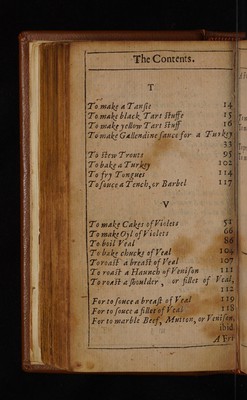 The Contents.
T
To make a Tansie 14
To make black Tart stuffe 15
To make yellow Tart stuff 16
To make Gallendine sauce for a Turkey
33
To stew Trouts 95
To bake a Turkey 102
To fry Tongues 114
To souce a Tench, or Barbel 117
V
To make Cakes of Violets 51
To make Oyl of Violets 66
To boil Veal 86
To bake chucks of Veal 104
To roast a breast of Veal 107
To roast a Haunch of Venison 111
To roast a shoulder, or fillet of Veal,
112
For to souce a breast of Veal 119
For to souce a fillet of Veal 118
For to marble Beef, Mutton, or Venison.
ibid